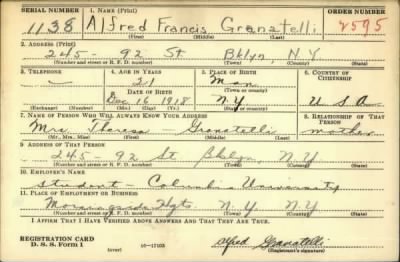 SERIAL NUMBER 1. NAME (Print) ORDER NUMBER
1138 Alfred Francis Granatelli 2595
(First) (Middle) (Last)
2. ADDRESS (Print)
245 - 92 St Bklyn, N.Y
(Number and street or R. F. D. number) (Town) (County) (State)
3. TELEPHONE 4. AGE IN YEARS 5. PLACE OF BIRTH 6. COUNTRY OF CITIZENSHIP
21 Man
DATE OF BIRTH (Town or county)
Dec 16 1918 N.Y U.S.A
(Exchange) (Number) (Mo.) (Day) (Yr.) (State or country)
7. NAME OF PERSON WHO WILL ALWAYS KNOW YOUR ADDRESS 8. RELATIONSHIP OF THAT PERSON
Mrs. Theresa - Granatelli mother
(Mr., Mrs., Miss) (First) (Middle) (Last)
9. ADDRESS OF THAT PERSON
245 - 92 St Bklyn, N.Y
(Number and street or R. F. D. number) (Town) (County) (State)
10. EMPLOYER'S NAME
Student Columbia University
11. PLACE OF EMPLOYMENT OR BUSINESS
Morningside Hgts. N.Y N.Y
(Number and street or R. F. D. number) (Town) (County) (State)
I AFFIRM THAT I HAVE VERIFIED ABOVE ANSWERS AND THAT THEY ARE TRUE.
REGISTRATION CARD
D. S. S. Form 1 (over) 16-17105 Alfred Granatelli
(Registrant's signature)